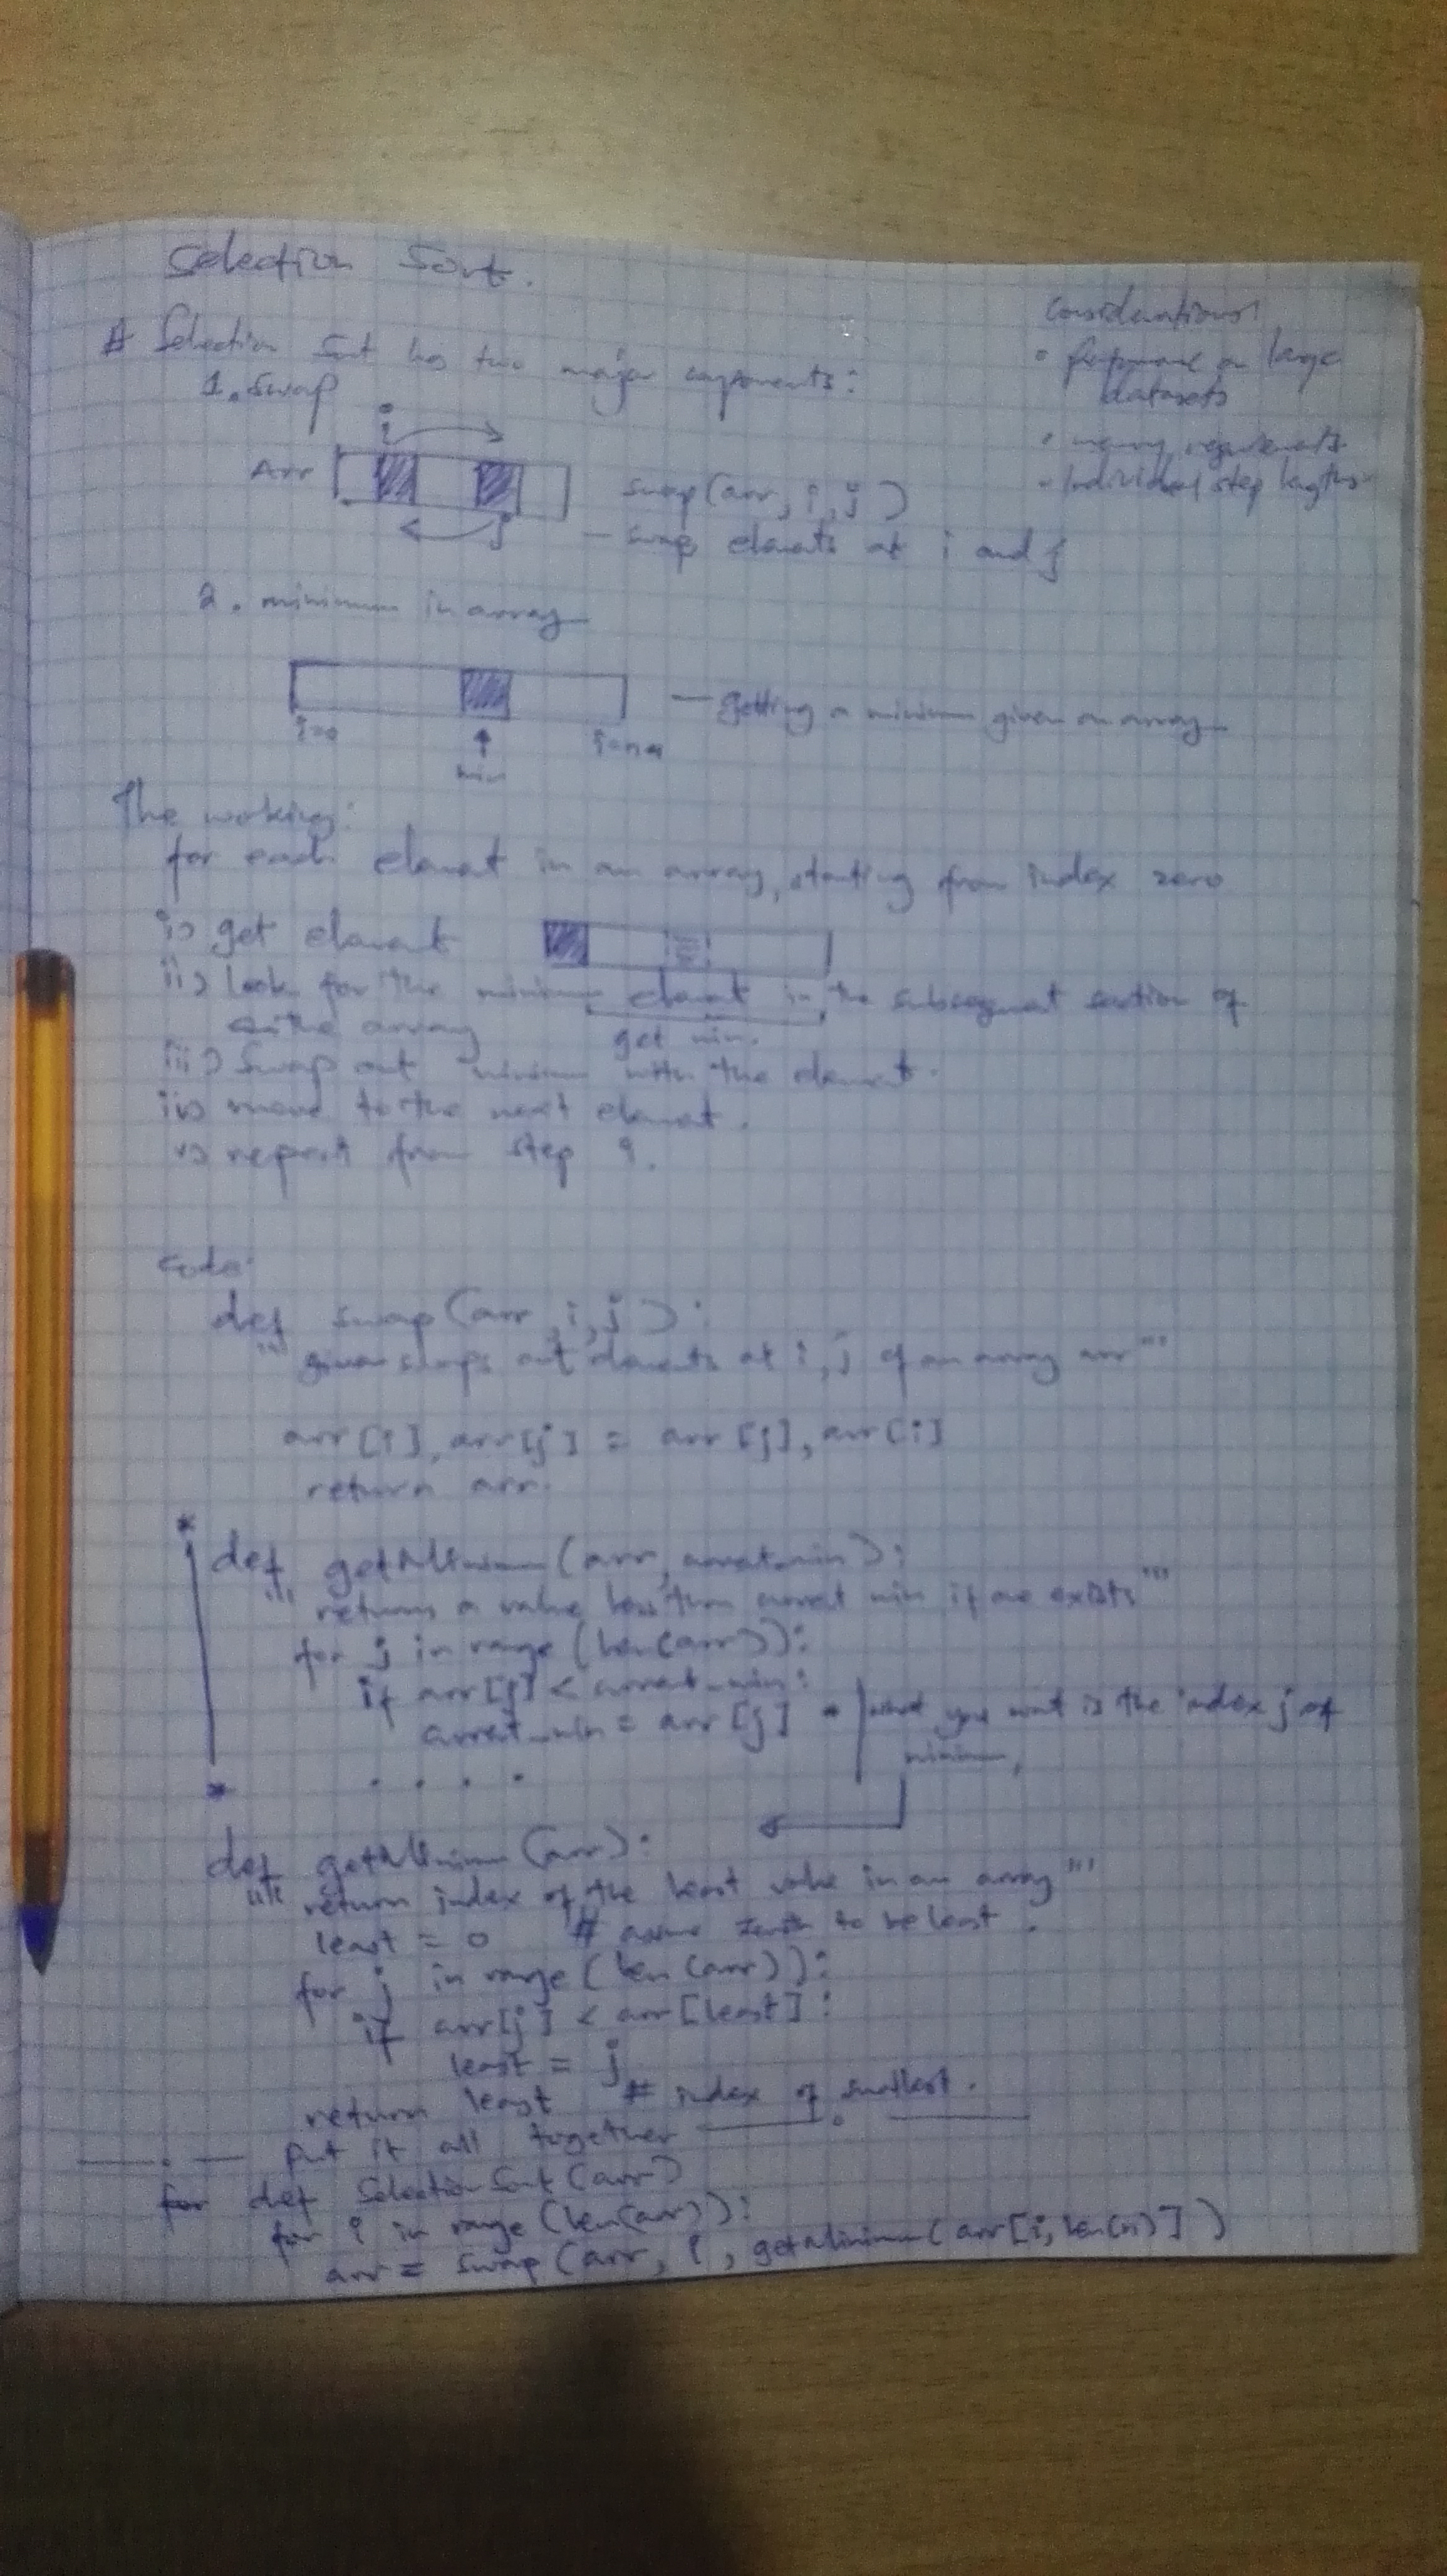 Selection Sort.
# Selection Sort has two major components:
1. Swap
i
Arr
j
swap(arr, i, j)
— swap elements at i and j
Considerations:
• performance on large
datasets
• memory requirements
• Individual step lengths
2. minimum in array
i=0
min
— getting a minimum given an array
The working:
for each element in an array, starting from index zero
i) get element
ii) look for the minimum element in the subsequent section of
the array
get min.
iii) Swap out minimum with the element.
iv) move to the next element.
v) repeat from step i.
Code:
def swap(arr, i, j):
""" swaps out elements at i, j of an array arr """
arr[i], arr[j] = arr[j], arr[i]
return arr.
* def getMinimum(arr, current_min):
""" returns a value less than current min if one exists """
for j in range(len(arr)):
if arr[j] < current_min:
current_min = arr[j] * what you want is the index j of
minimum,
* . . . .
def getMinimum(arr):
""" return index of the least value in an array """
least = 0 # assume to be least.
for j in range(len(arr)):
if arr[j] < arr[least]:
least = j
return least # index of smallest.
put it all together
for def SelectionSort(arr)
for i in range(len(arr)):
arr = swap(arr, i, getMinimum(arr[i, len(arr)])